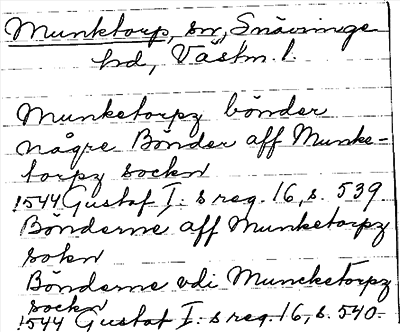 Munktorp, sn, Snävringe
hd, Västm. l.
Munketorpz bönder
någre Bönder aff Munke-
torpz sockn
1544 Gustaf I:s reg. 16, s. 539
Bönderne aff Munketorpz
sokn
Bönderne vdi Muncketorpz
sockn
1544 Gustaf I:s reg. 16, s. 540.